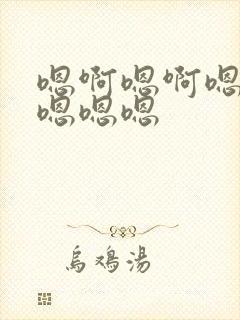 嗯啊嗯啊嗯
嗯嗯嗯
乌鸡汤